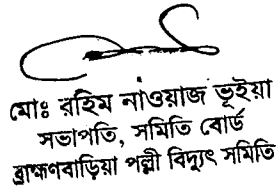 মোঃ রহিম নাঁওয়াজ ভূইয়া
সভাপতি, সমিতি বোর্ড
ব্রাহ্মণবাড়িয়া পল্লী বিদ্যুৎ সমিতি